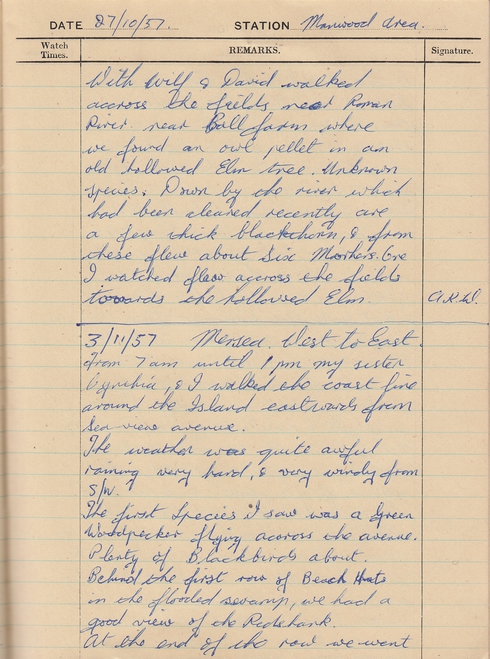 DATE 27/10/57. STATION Manwood Area.
Watch Times. REMARKS. Signature.
With Wilf & David walked
accross the fields near Roman
River near Ball farm where
we found an owl pellet in an
old hollowed Elm tree. Unknown
species. Down by the river which
had been cleared recently are
a few thick blackthorn, & from
these flew about six Moorhens. One
I watched flew accross the fields
towards the hollowed Elm. A.K.W.
3/11/57 Mersea. West to East.
from 7am until 1pm my sister
Cynthia, & I walked the coast line
around the Island eastwards from
sea view avenue.
The weather was quite awful
raining very hard, & very windy from
S/W.
The first species I saw was a Green
Woodpecker flying accross the avenue.
Plenty of Blackbirds about.
Behind the first row of Beach Huts
in the flooded swamp, we had a
good view of the Redshank.
At the end of the row we went